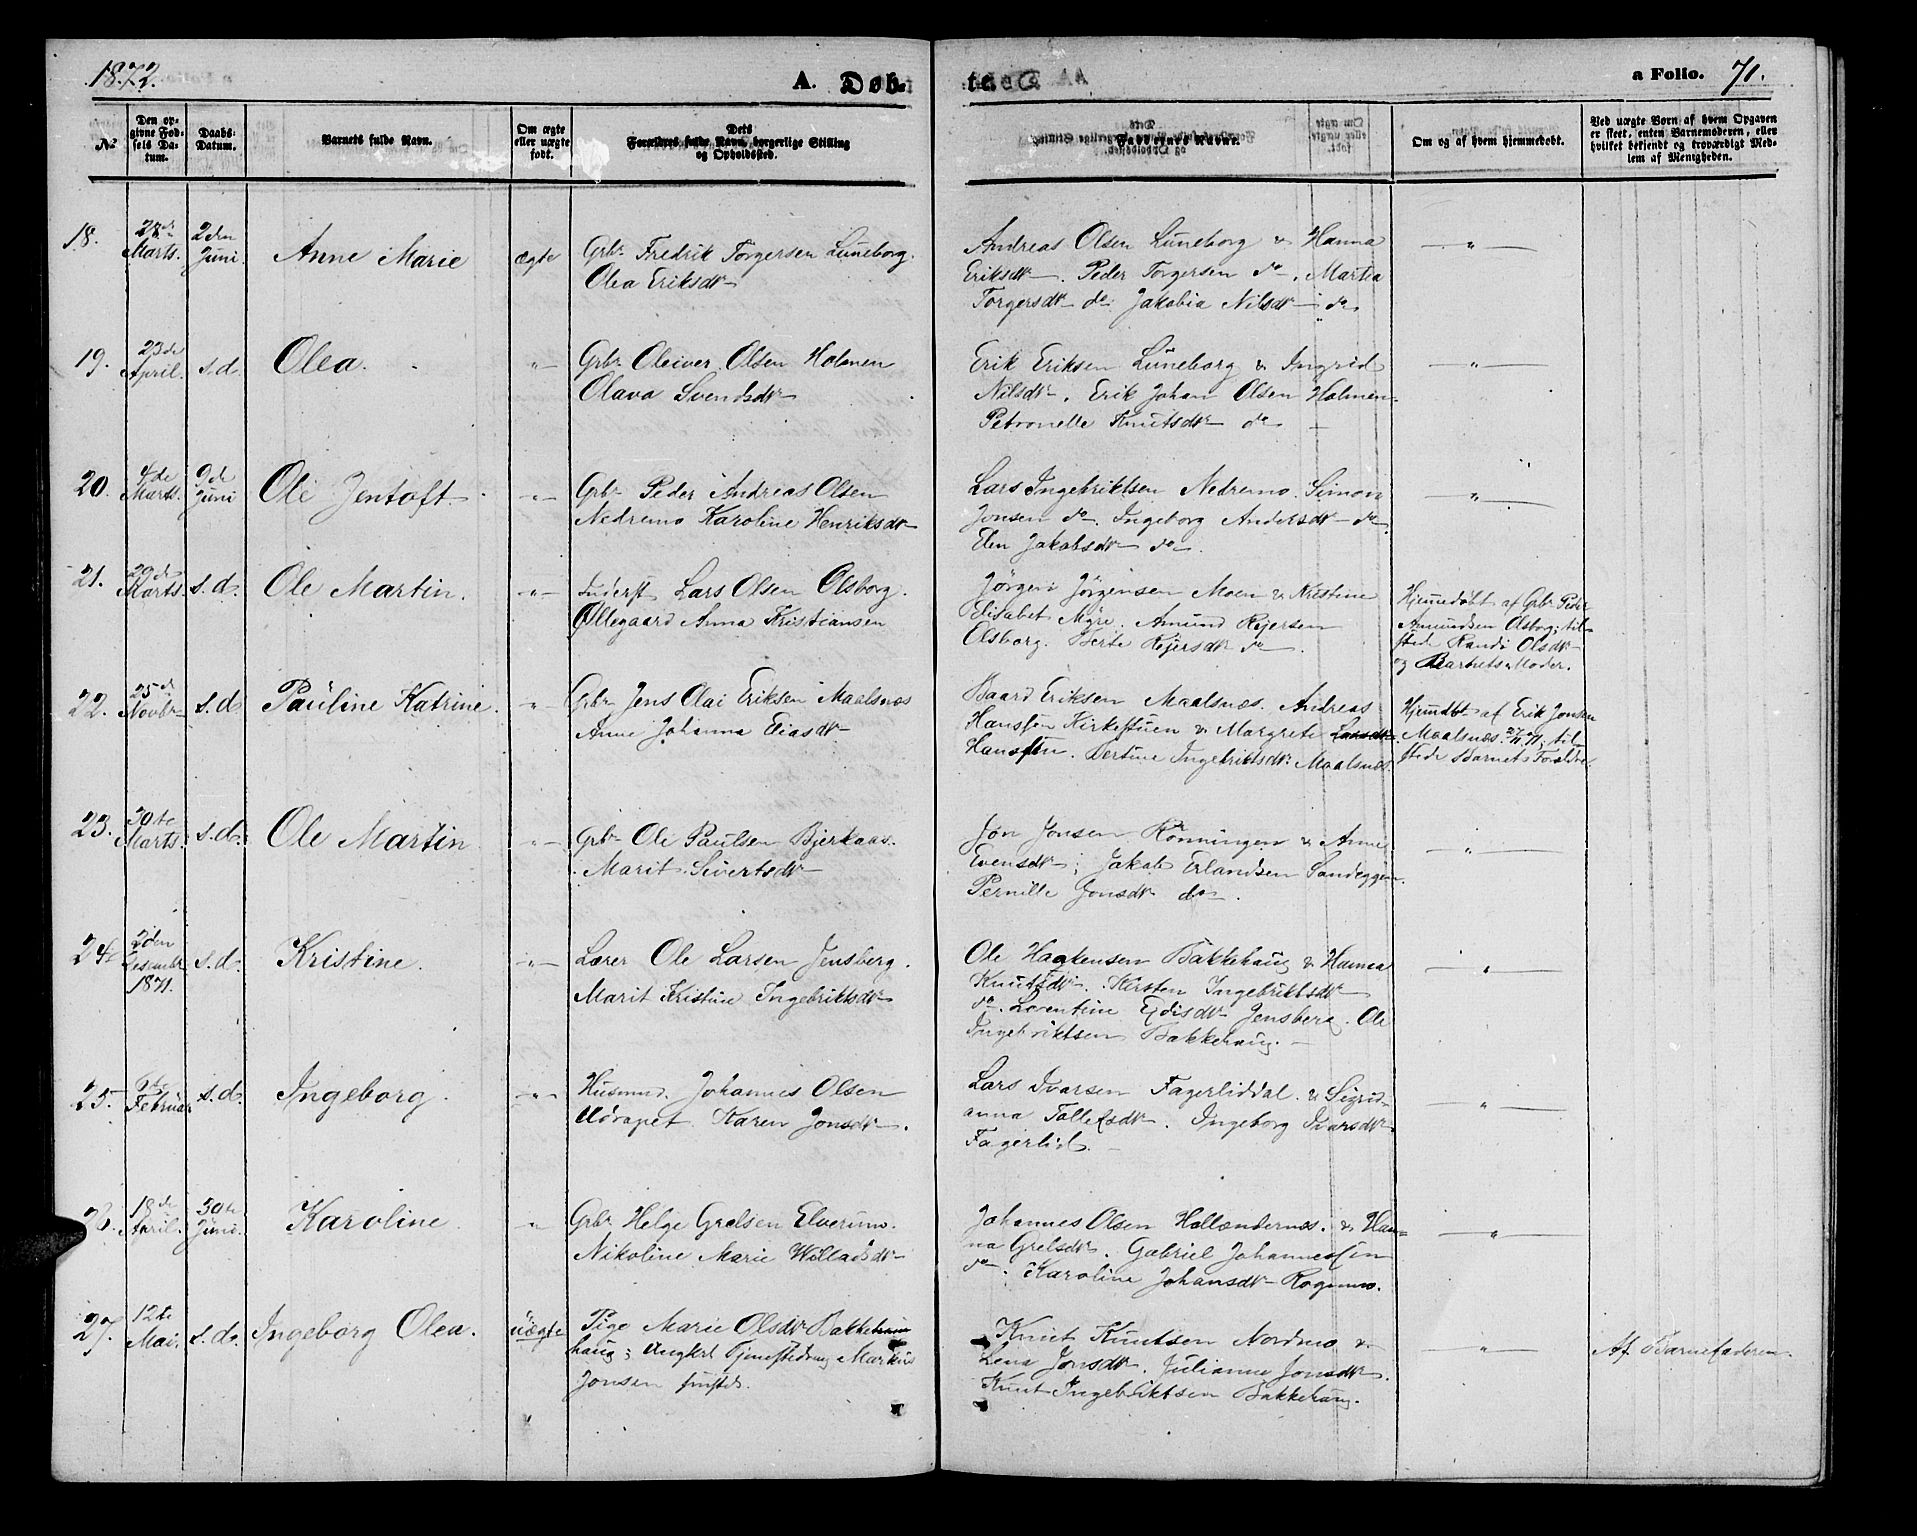 1872. A. Døbte. a Folio. 71.
№ Den opgivne Fødsels Datum. Daabs-Datum. Barnets fulde Navn. Om ægte eller uægte født. Dets Forældres fulde Navn, borgerlige Stilling og Opholdssted. Faddernes Navne. Om og af hvem hjemmedøbt. Ved uægte Børn af hvem Opgaven er skeet, enten Barnemoderen, eller hvilket bekjendt og troværdigt Medlem af Menigheden.
18. Marts. 2den Juni Anne Marie ægte Grbr Fredrik Torgersen Luneborg.
Olea Eriksdtr
Andreas Olsen Luneborg & Hanna
Eriksdtr. Peder Torgersen do, Marta
Torgersdtr do. Jakobia Nilsdtr do — " —
19. 23de April. s.d. Olea. — " — Grbr Oleiver Olsen Holmen
Olava Svendsdtr
Erik Eriksen Luneborg & Ingrid
Nilsdtr, Erik Johan Olsen Holmen
Petronelle Knutsdtr do — " —
20. 4de Marts. 9de Juni Ole Jentoft. — " — Grbr Peder Andreas Olsen
Nedremo Karoline Henriksdtr
Lars Ingebriktsen Nedremo. Simon
Jonsen do. Ingeborg Andersdtr do
Elen Jakobsdtr do. — " —
21. 29de Marts s.d. Ole Martin. — " — Inderst Lars Olsen Olsborg.
Øllegaard Anna Kristiansen
Jørgen Jørgensen Moen & Kristine
Elisabet Myre. Amund Rejersen
Olsborg. Berte Rejersdtr do.
Hjemmedøbt af Grbr Peder
Amundsen Olsborg; til-
stede Randi Olsdtr
og Barnets Moder.
22. 25de Novbr s.d. Pauline Katrine. — " — Grbr Jens Olai Eriksen Maalsnæs
Anne Johanna Eliasdtr
Baard Eriksen Maalsnæs. Andreas
Hanssen Kirkestuen & Margrete Larsdtr
Hanssen. Bertine Ingebriktsdtr Maalsnæs.
Hjemdbt af Erik Jonsen
Maalsnæs til-
stede Barnets Forældre.
23. 30te Marts. s.d. Ole Martin — " — Grbr Ole Paulsen Bjerkaas.
Marit Sivertsdtr
Jon Jonsen Rønningen & Anne
Evensdtr; Jakob Erlandsen Sandeggen.
Pernille Jonsdtr do. — " —
24. 2den Desembr 1871. s.d. Kristine. — " — Lærer Ole Larsen Jensberg.
Marit Kristine Ingebriktsdtr
Ole Haakensen Bakkehaug & Hanna
Knutsdtr. Kirsten Ingebriktsdtr
do. Lorentine Jensberg. Ole
Ingebriktsen Bakkehaug. — " —
25. Februar s.d. Ingeborg. — " — Husmd. Johannes Olsen
Udrapet Karen Jonsdtr.
Lars Ivarsen Fagerliddal. & Sigrid-
anna Tollefsdtr. Ingeborg Ivarsdtr
Fagerlid. — " —
26. 18de April. 30te Juni. Karoline " Grbr Helge Grelsen Elverum.
Nikoline Marie Willadsdtr
Johannes Olsen Hollændernæs. & Han-
na Grelsdtr. Gabriel Johannessen
do. Karoline Johansdtr Rognmo. — " —
27. 12te Mai. s.d. Ingeborg Olea. uægte Pige Marie Olsdtr Bakke
haug; Ungkrl Tjenestedreng Markus
Jonsen
Knut Knutsen Nordmo &
Lena Jonsdtr. Julianna Jonsdtr.
Knut Ingebriktsen Bakkehaug. — " — Af Barnefaderen.